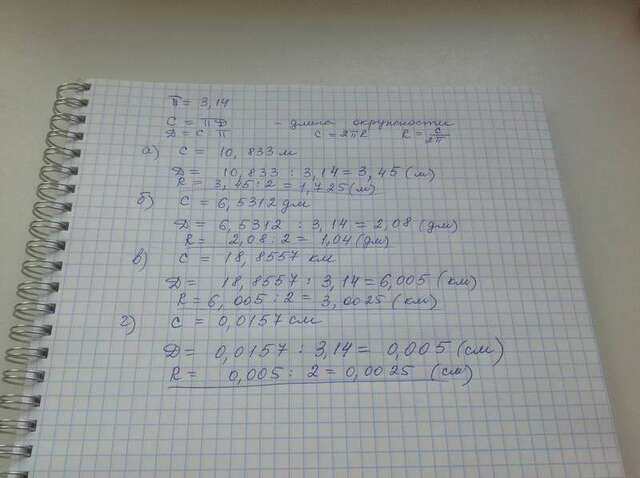 П = 3,14
C = ПД - длина окружности
Д = C П C = 2ПR R = C/2П
а) C = 10,833 м
Д = 10,833 : 3,14 = 3,45 (м)
R = 3,45 : 2 = 1,725 (м)
б) C = 6,5312 дм
Д = 6,5312 : 3,14 = 2,08 (дм)
R = 2,08 : 2 = 1,04 (дм)
в) C = 18,8557 км
Д = 18,8557 : 3,14 = 6,005 (км)
R = 6,005 : 2 = 3,0025 (км)
г) C = 0,0157 см
Д = 0,0157 : 3,14 = 0,005 (см)
R = 0,005 : 2 = 0,0025 (см)